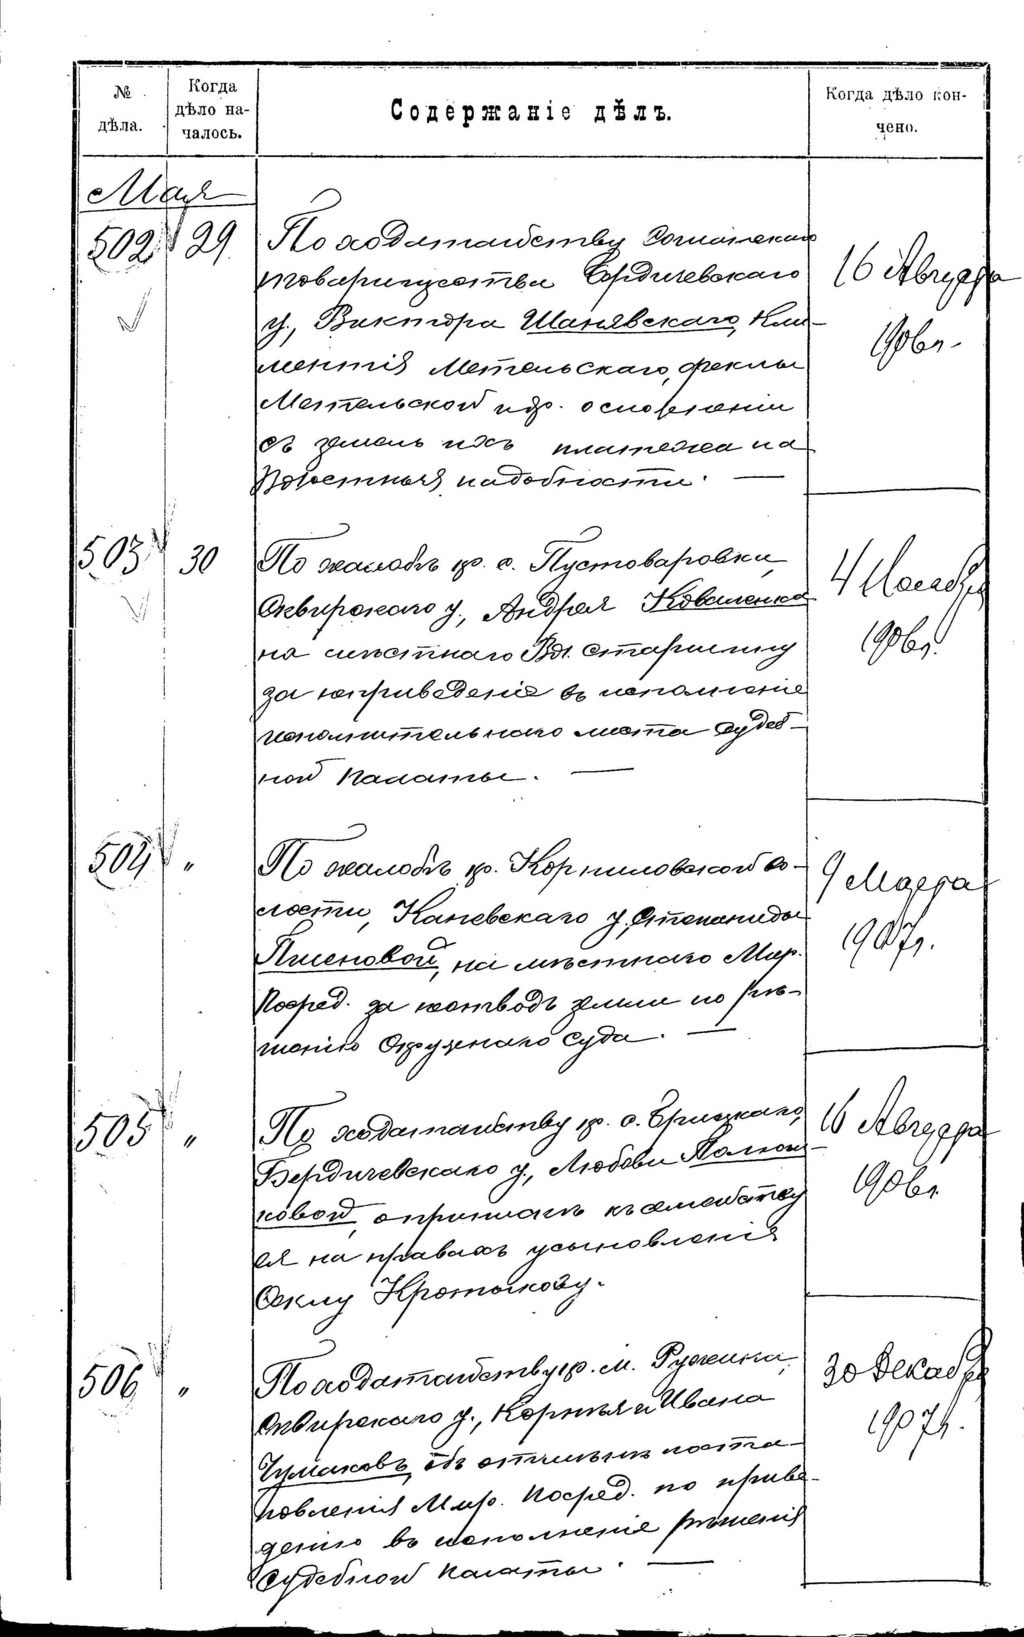 № дѣла.
Когда дѣло на-
чалось.
Содержаніе дѣлъ.
Когда дѣло кон-
чено.
Мая
502 29
По ходатайству
товарищества Бердичевскаго
у., Виктора Шанявскаго, Кли-
ментія Метельскаго, Феклы
Метельской и др. о сложеніи
съ земель ихъ платежа на
надобности. —
16 Августа
1906 г.
503 30
По жалобѣ кр. с. Пустоваровки,
Сквирскаго у., Андрея Коваленка
на мѣстнаго Вол. старшину
за неприведеніе въ исполненіе
исполнительнаго листа Судеб-
ной Палаты. —
4 Ноября
1906 г.
504 "
По жалобѣ кр. Корниловской во-
лости, Каневскаго у., Степаниды
на мѣстнаго Мир.
Посред. за неотводъ земли по рѣ-
шенію Окружнаго Суда. —
9 Марта
1907 г.
505 "
По ходатайству кр. с.
Бердичевскаго у., Любови
о припискѣ къ семейству
ея на правахъ усыновленія
Феклу
16 Августа
1906 г.
506 "
По ходатайству кр. м. Ружина,
Сквирскаго у., Корнѣя и Ивана
Чумаковъ, объ отмѣнѣ поста-
новленія Мир. Посред. по приве-
денію въ исполненіе рѣшенія
Судебной Палаты. —
30 Декабря
1907 г.